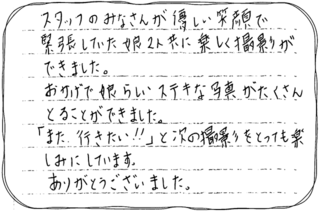 スタッフのみなさんが優しい笑顔で
緊張していた娘2人共に楽しく撮影が
できました。
おかげで娘らしいステキな写真がたくさん
とることができました。
「また行きたい!!」と次の撮影をとっても楽
しみにしています。
ありがとうございました。